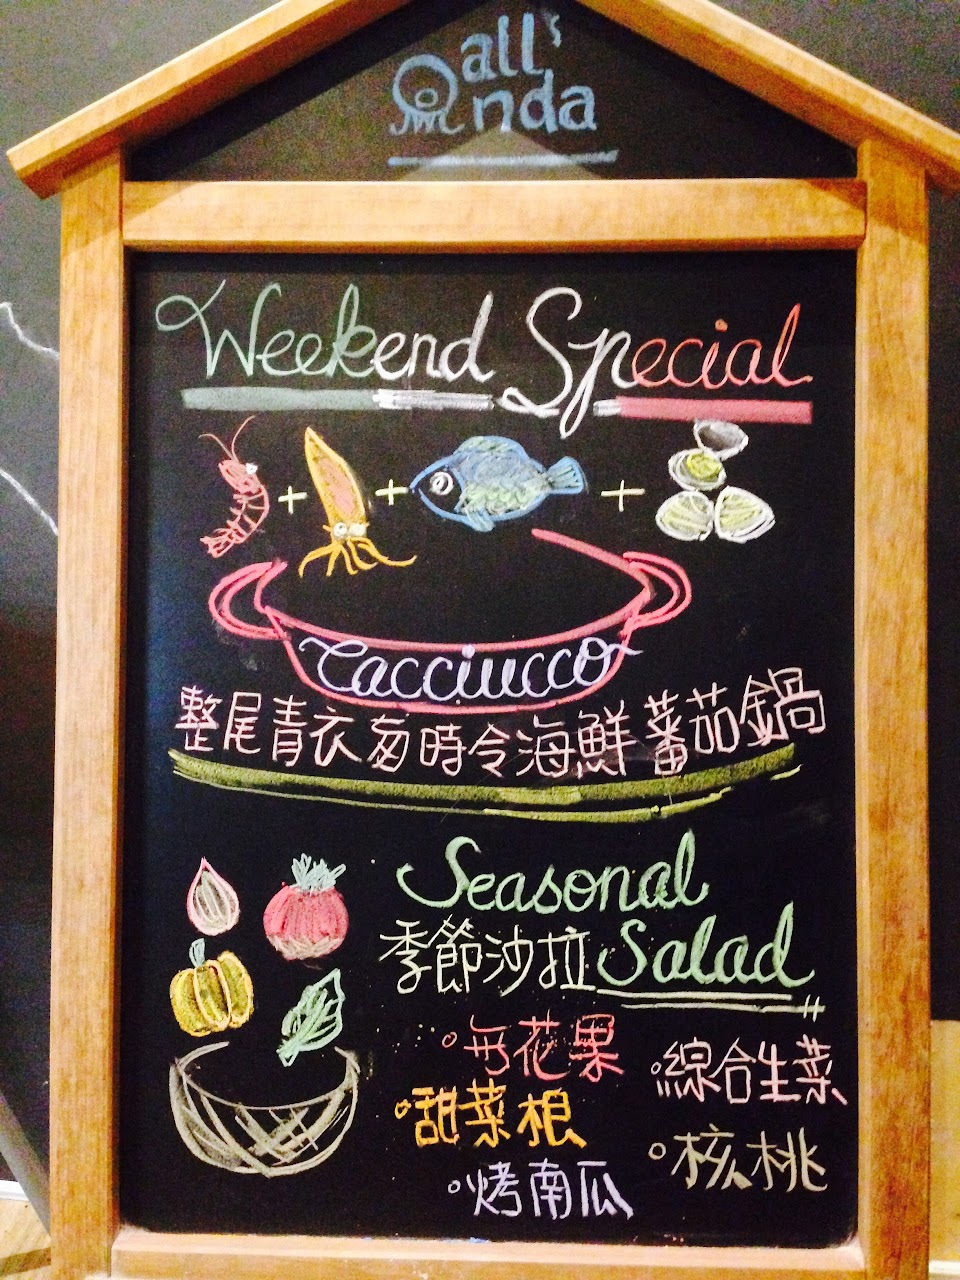 all'
onda
Weekend Special
+ + +
Cacciucco
整尾青衣每時令海鮮蕃茄鍋
Seasonal
季節沙拉 Salad
無花果
綜合生菜
甜菜根
核桃
烤南瓜